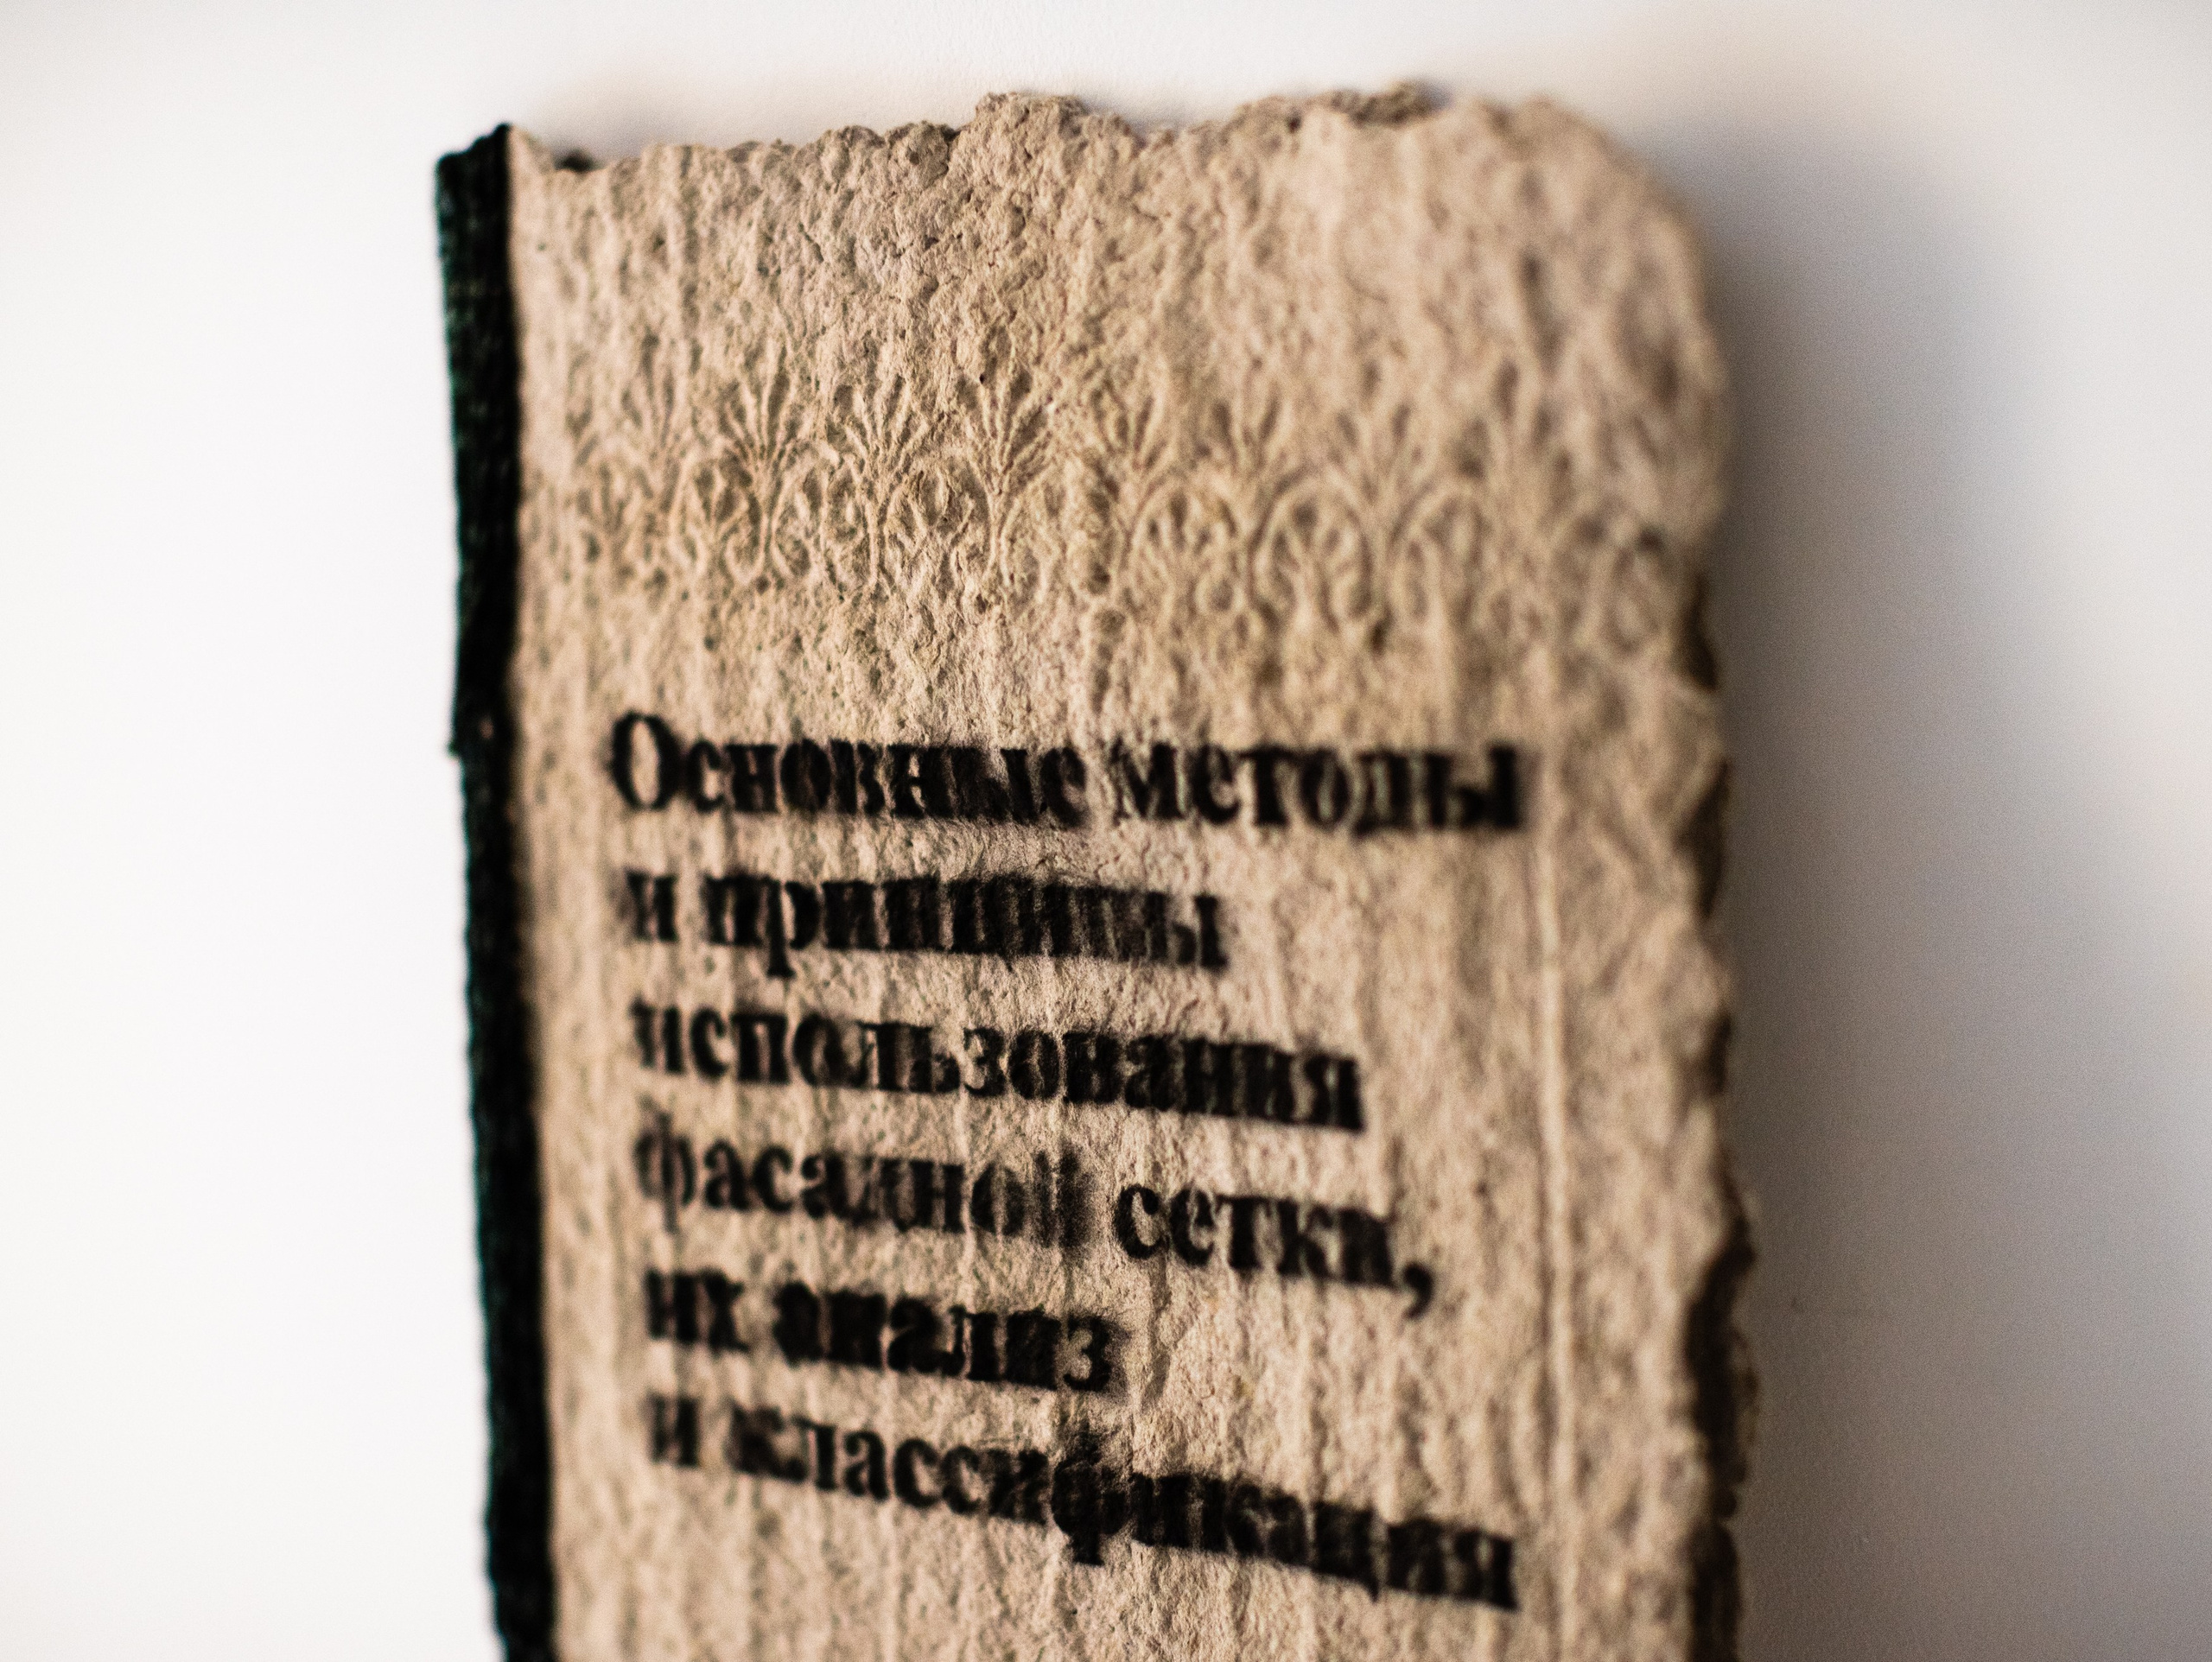 Основные методы
и принципы
использования
фасадной сетки,
их анализ
и классификация